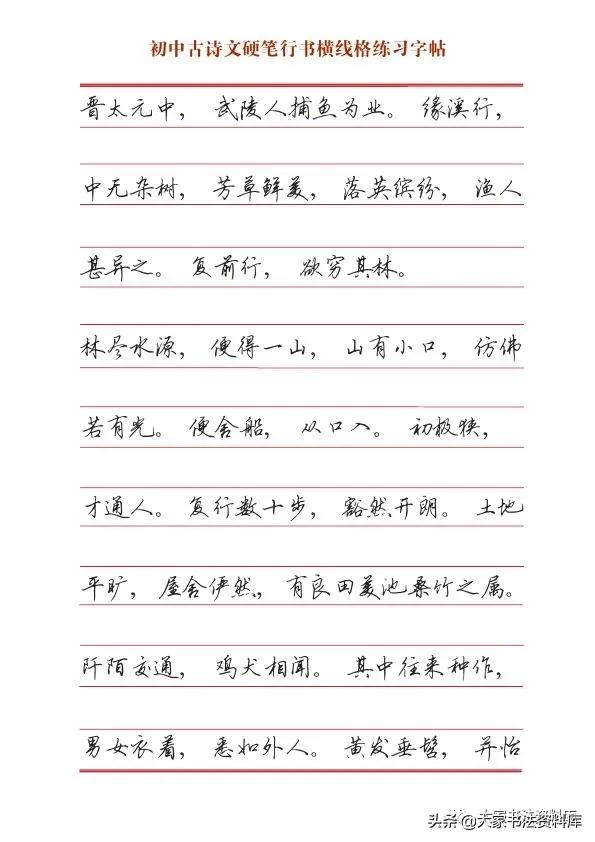 初中古诗文硬笔行书横线格练习字帖
晋太元中，武陵人捕鱼为业。缘溪行，
中无杂树，芳草鲜美，落英缤纷，渔人
甚异之。复前行，欲穷其林。
林尽水源，便得一山，山有小口，仿佛
若有光。便舍船，从口入。初极狭，
才通人。复行数十步，豁然开朗。土地
平旷，屋舍俨然，有良田美池桑竹之属。
阡陌交通，鸡犬相闻。其中往来种作，
男女衣着，悉如外人。黄发垂髫，并怡
头条 @大家书法资料库